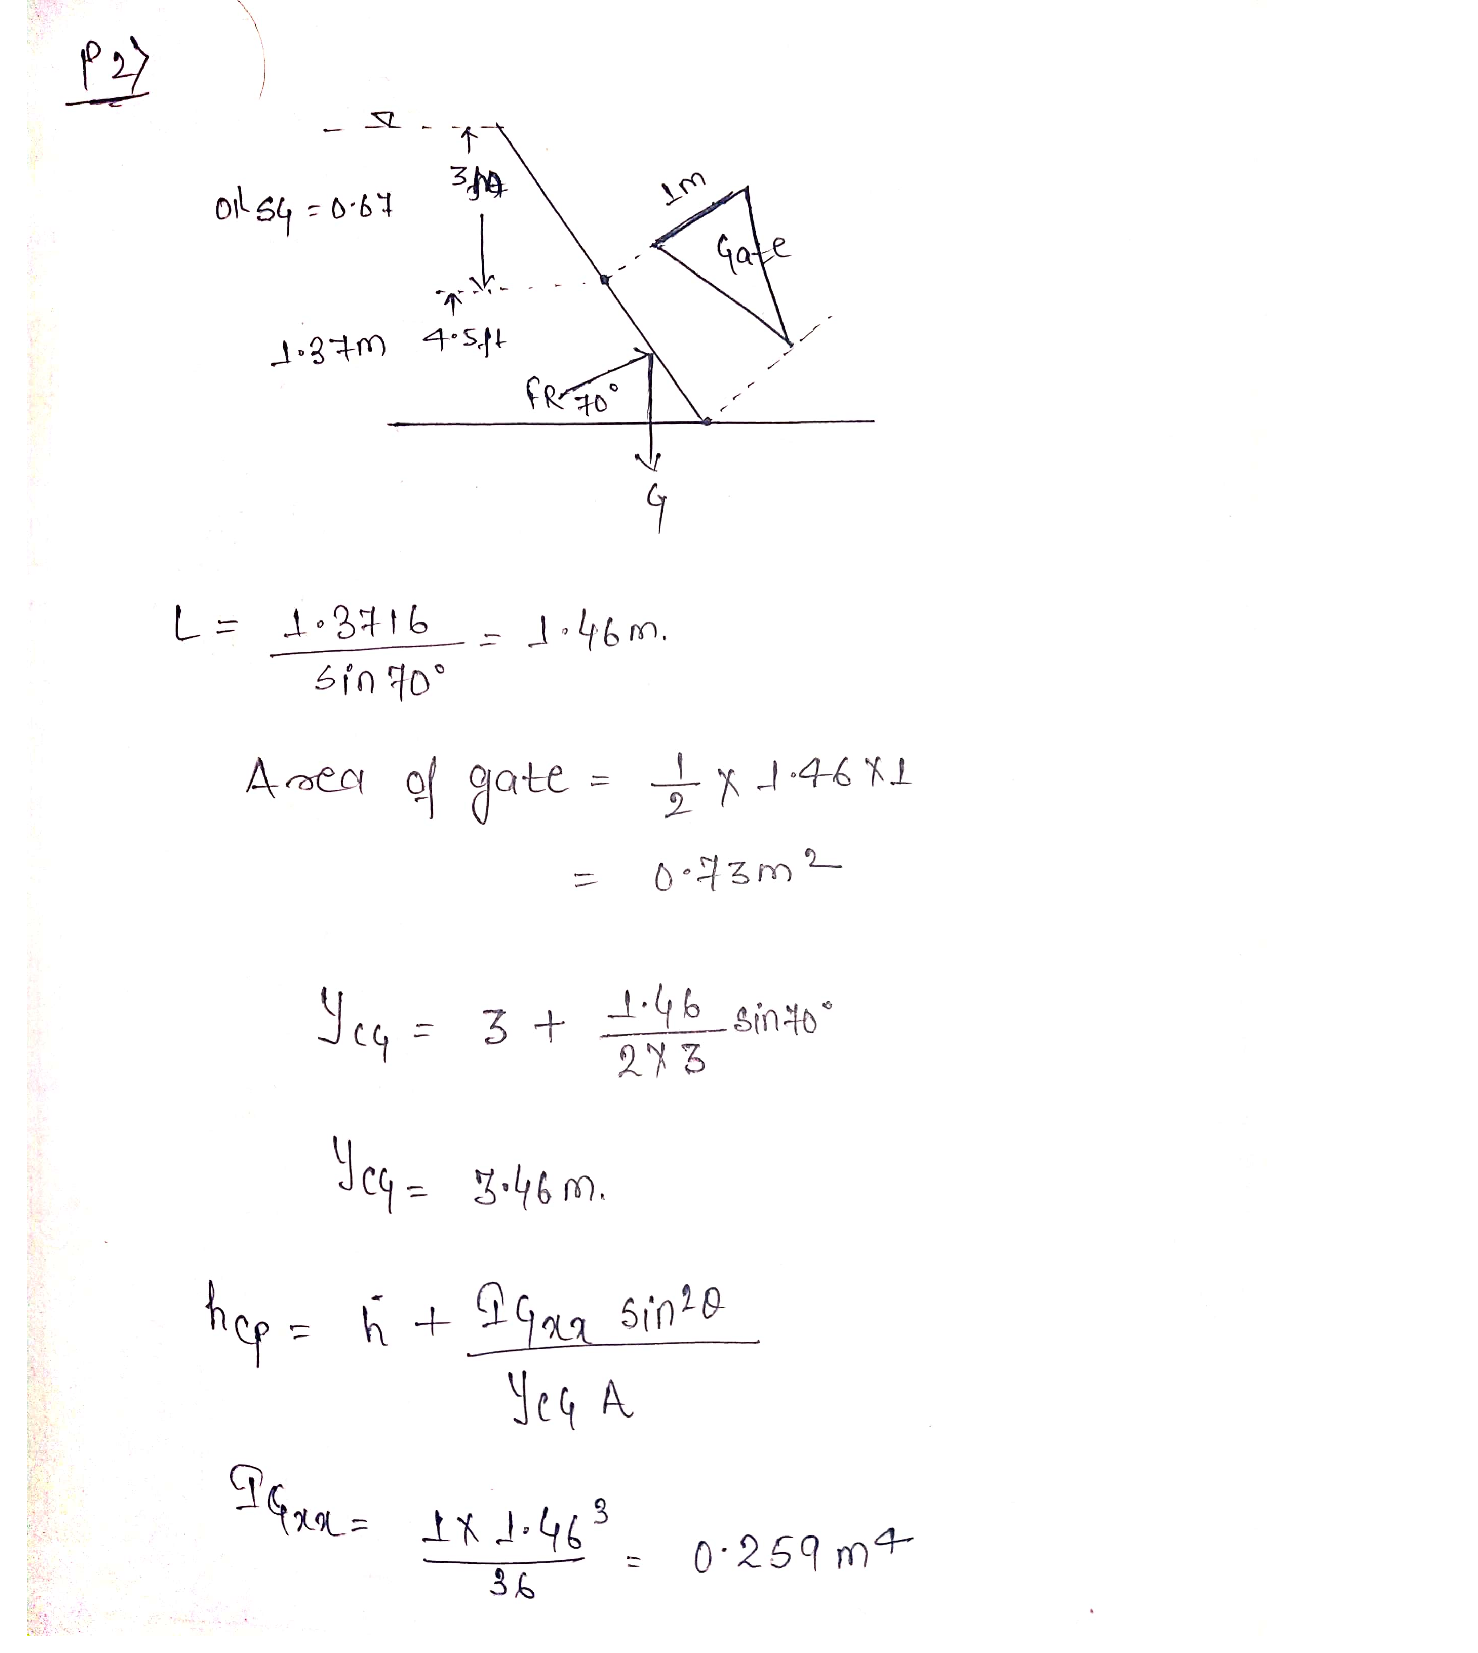 P2>
1m
3
Oil SG = 0.67
Gate
1.37m 4.5ft
FR 70°
G
L = 1.3716 / sin 70° = 1.46 m.
Area of gate = 1/2 x 1.46 x 1
= 0.73 m²
YCG = 3 + 1.46 / 2x3 sin70°
YCG = 3.46 m.
hcp = h̄ + IGxx sin²θ / YCG A
IGxx = 1 x 1.46³ / 36 = 0.259 m4